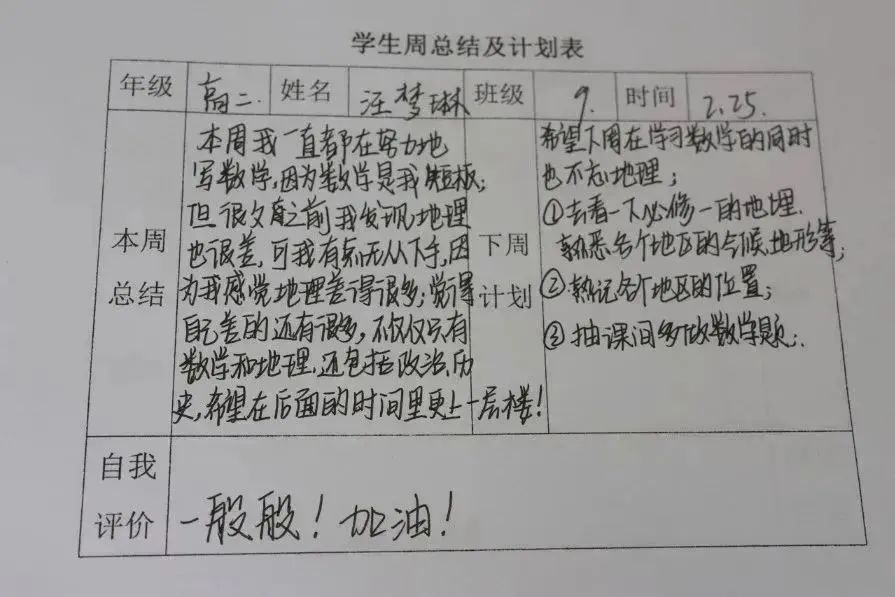 学生周总结及计划表
年级 高二. 姓名 汪梦琳 班级 9. 时间 2.25.
本周总结
本周我一直都在努力地
写数学,因为数学是我短板;
但很久之前我发现地理
也很差,可我有无从下手,因
为我感觉地理差得很多;觉得
自己差的还有很多,不仅仅只有
数学和地理,还包括政治、历
史,希望在后面的时间里更上一层楼!
下周计划
希望下周在学习数学的同时
也不忘地理;
①去看一下必修一的地理.
熟悉各个地区的气候、地形等;
②熟记各个地区的位置;
③抽课间多做数学题;.
自我评价
一般般!加油!